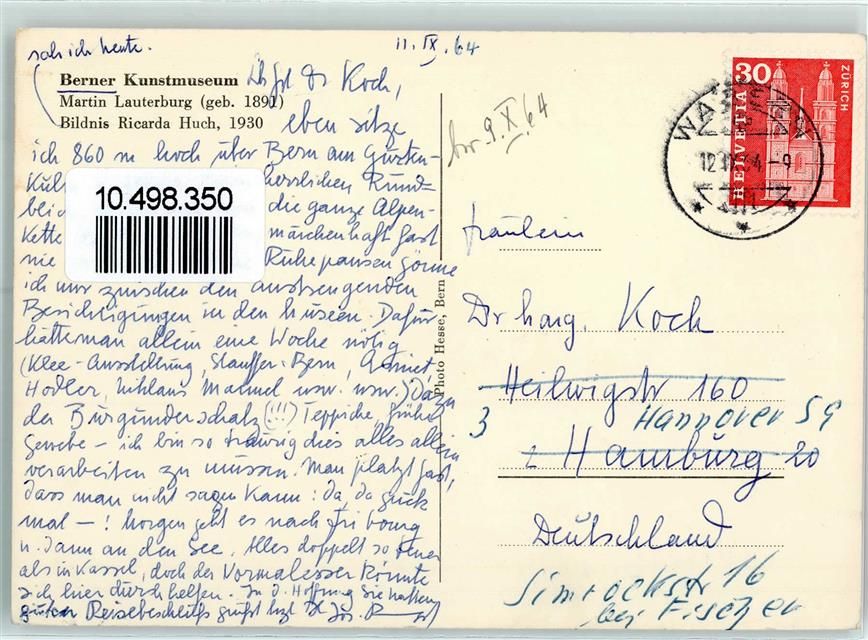 sah ich heute.
11. IX. 64
Berner Kunstmuseum
Martin Lauterburg (geb. 1891)
Bildnis Ricarda Huch, 1930
Dr Koch,
eben sitze
ich 860 m hoch über Bern am Gurten-
Kul
herrlichen Rund=
bei
die ganze Alpen-
Kette
märchenhaft fast
nie
Ruhepausen gönne
ich nur zwischen den anstrengenden
Besichtigungen in den Museen. Dafür
hätte man allein eine Woche nötig
(Klee-Ausstellung, Stauffer-Bern,
Hodler, Niklaus Manuel usw. usw.) Dazu
der Burgunderschatz (!!!) Teppiche, frühe
Gewebe – ich bin so traurig dies alles allein
verarbeiten zu müssen. Man platzt fast,
dass man nicht sagen kann: da, da guck
mal –! Morgen geht es nach Fribourg
u. dann an den See. Alles doppelt so teuer
als in Kassel, doch der Vormalesser könnte
sich hier durchhelfen. In d. Hoffnung Sie hatten
guten Reisebeschluß grüßt
10.498.350
Photo Hesse, Bern
9. X. 64
HELVETIA
30
ZÜRICH
12.IX.64-9
Fräulein
Dr Marg. Koch
Heilwigstr 160
3 Hannover
z Hamburg 20
Deutschland
Simrockstr 16
bei Fischer